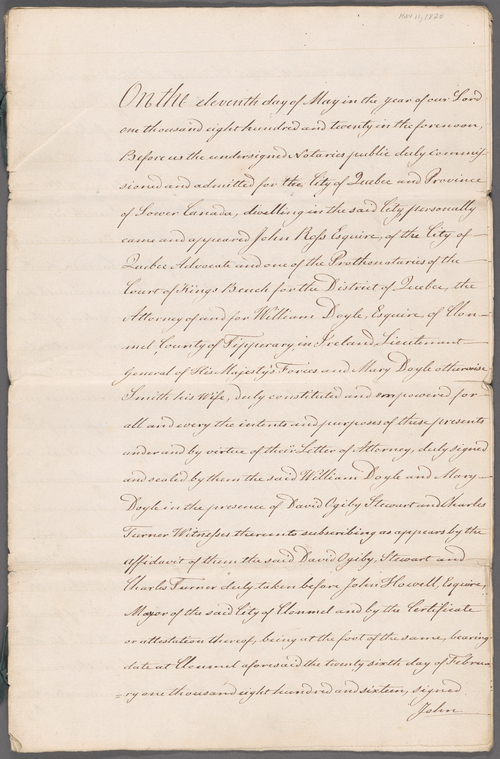 May 11, 1820
On the eleventh day of May in the year of our Lord
one thousand eight hundred and twenty in the forenoon,
Before us the undersigned Notaries public duly commis-
sioned and admitted for the City of Quebec and Province
of Lower Canada, dwelling in the said City personally
came and appeared John Ross Esquire, of the City of
Quebec Advocate and one of the Prothonotaries of the
Court of Kings Bench for the District of Quebec, the
Attorney of and for William Doyle, Esquire, of Clon-
mel, County of Tipperary, in Ireland, Lieutenant
General of His Majesty's Forces and Mary Doyle otherwise
Smith his Wife, duly constituted and empowered for
all and every the intents and purposes of these presents
under and by virtue of their Letter of Attorney, duly signed
and sealed by them the said William Doyle and Mary
Doyle in the presence of David Ogiby Stewart and Charles
Turner Witnesses thereunto subscribing as appears by the
affidavit of them the said David Ogiby, Stewart and
Charles Turner duly taken before John Howell, Esquire,
Mayor of the said City of Clonmel and by the Certificate
or attestation thereof, being at the foot of the same, bearing
date at Clonmel aforesaid the twenty sixth day of Februa
=ry one thousand eight hundred and sixteen, signed
John